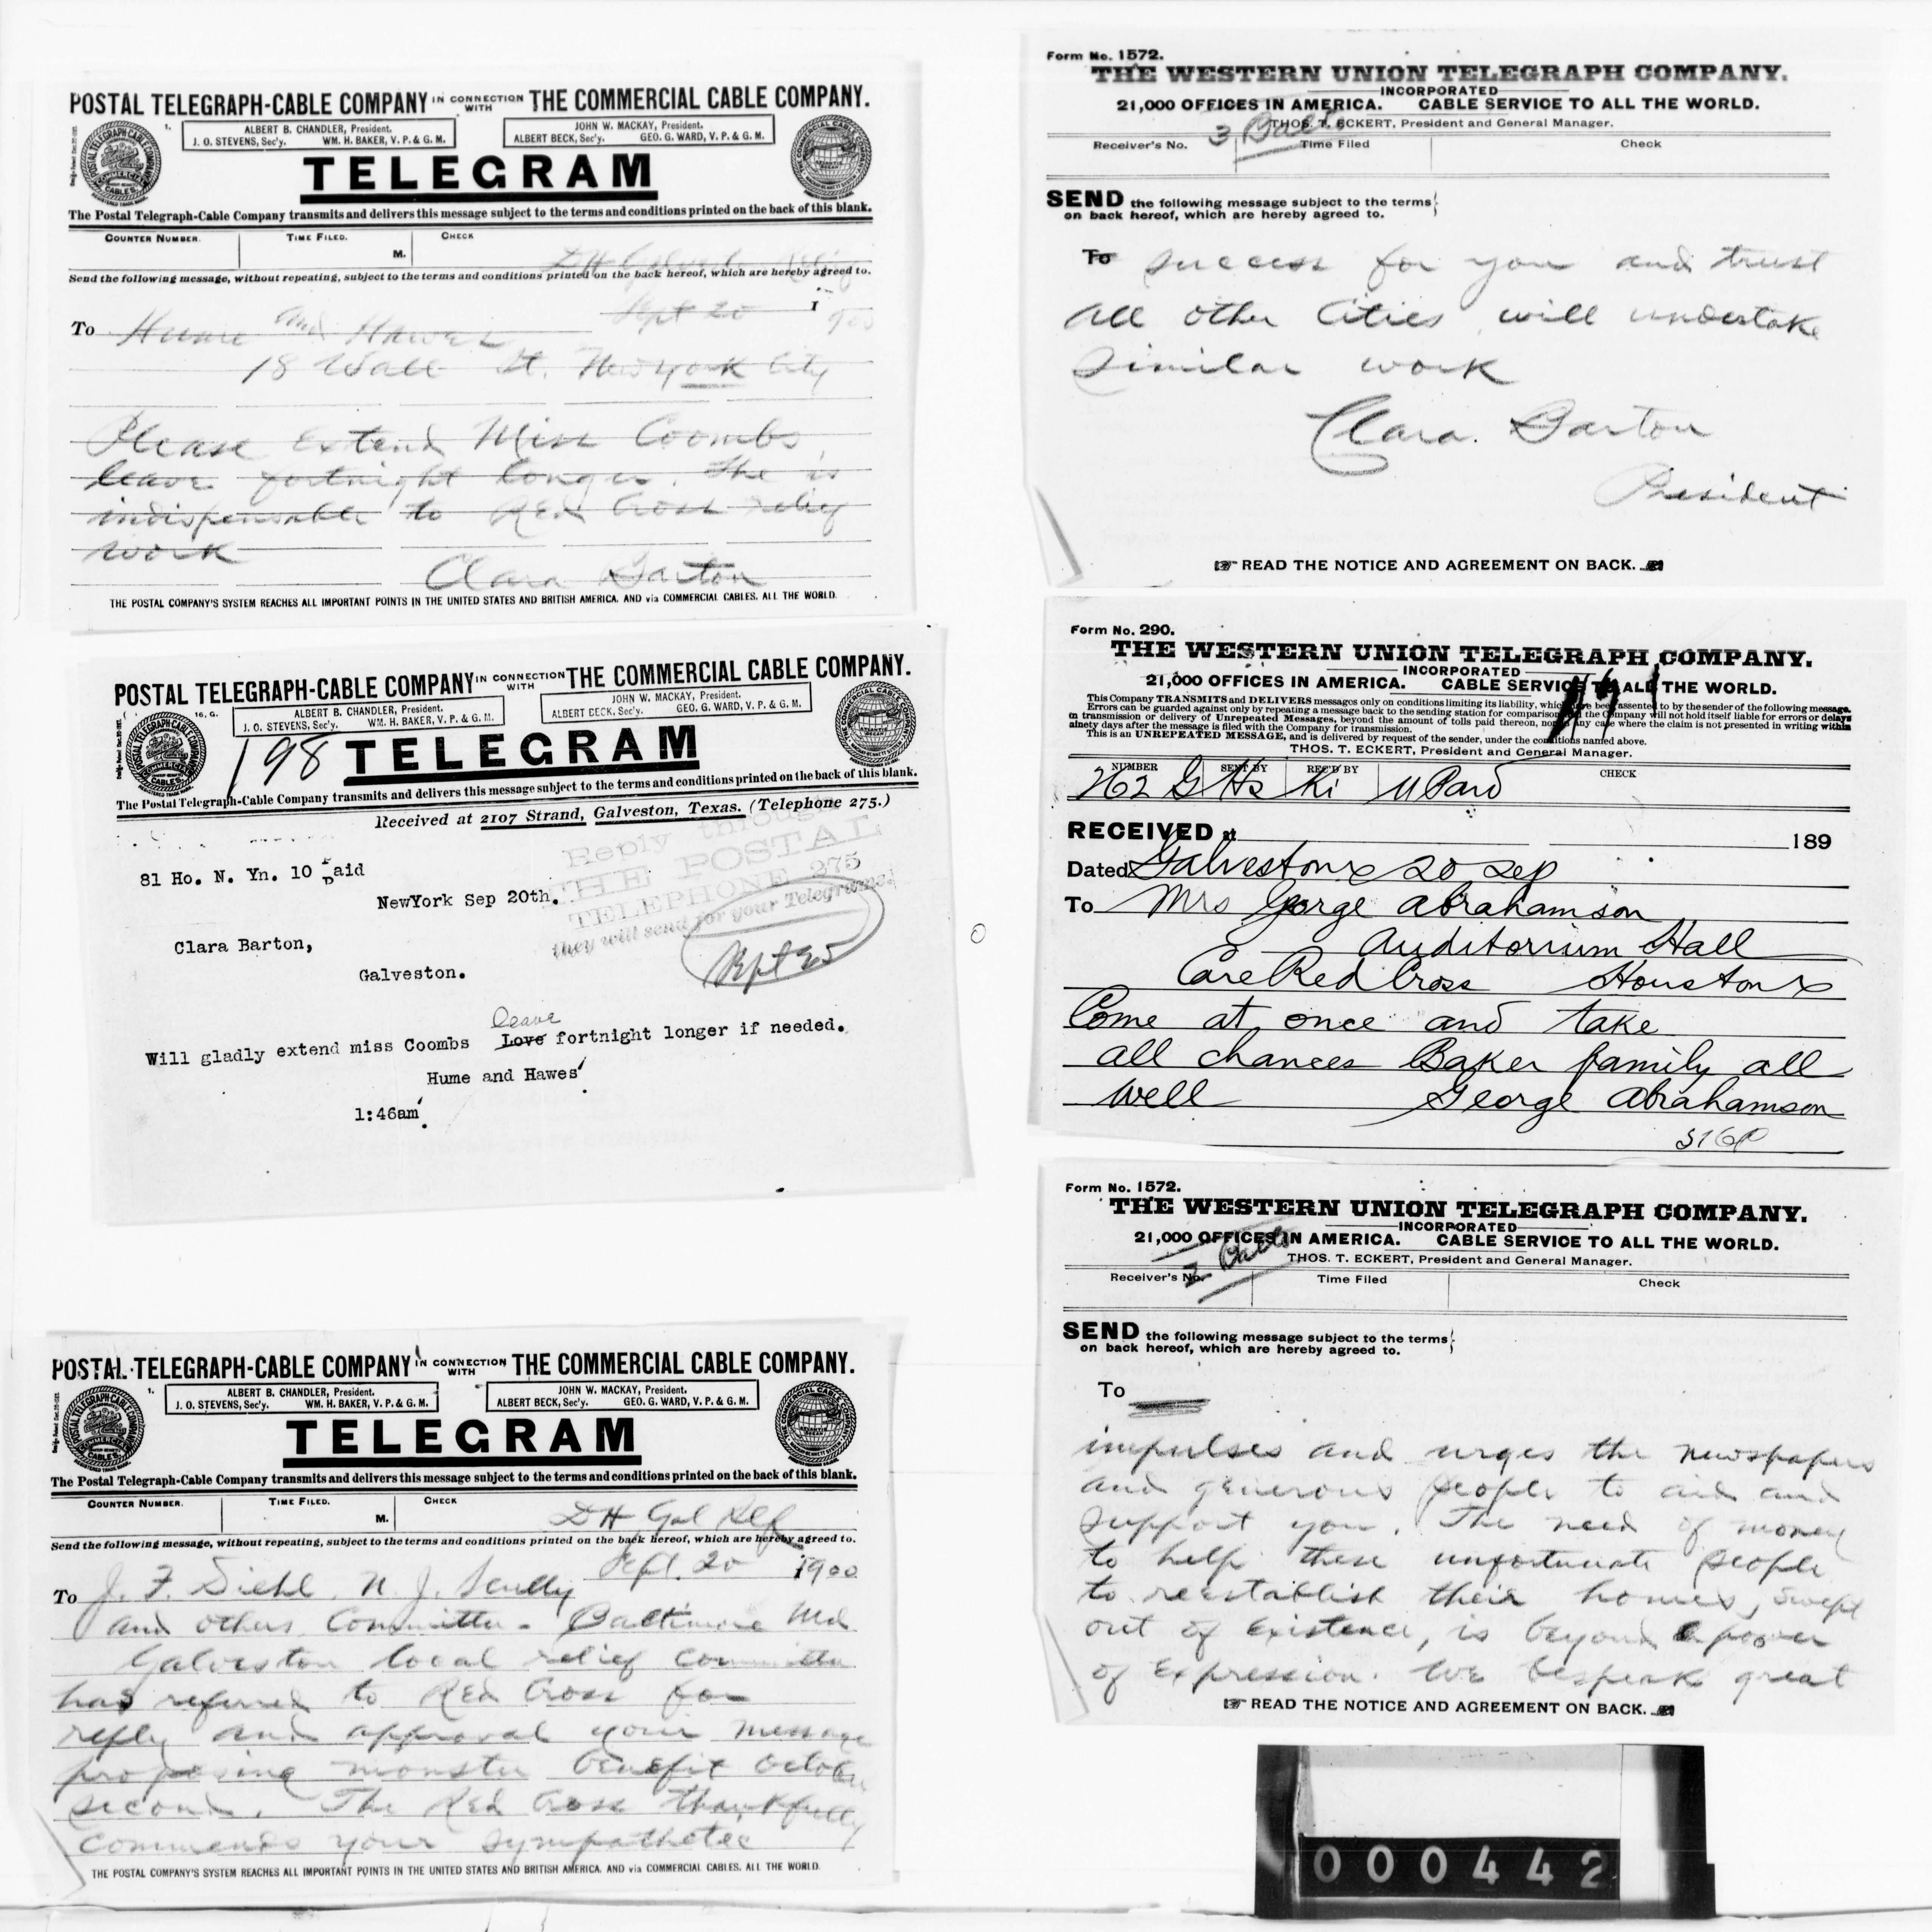 POSTAL TELEGRAPH-CABLE COMPANY IN CONNECTION WITH THE COMMERCIAL CABLE COMPANY.
ALBERT B. CHANDLER, President.
J. O. STEVENS, Sec'y. WM. H. BAKER, V. P. & G. M.
JOHN W. MACKAY, President.
ALBERT BECK, Sec'y. GEO. G. WARD, V. P. & G. M.
TELEGRAM
The Postal Telegraph-Cable Company transmits and delivers this message subject to the terms and conditions printed on the back of this blank.
COUNTER NUMBER. TIME FILED. CHECK
M.
DH Galveston Relief
Send the following message, without repeating, subject to the terms and conditions printed on the back hereof, which are hereby agreed to.
Sept 20 1900
To Hume and Hawes
18 Wall St. New York City
Please Extend Miss Coombs
leave fortnight longer. She is
indispensable to Red Cross relief
work
Clara Barton
THE POSTAL COMPANY'S SYSTEM REACHES ALL IMPORTANT POINTS IN THE UNITED STATES AND BRITISH AMERICA, AND via COMMERCIAL CABLES, ALL THE WORLD.
POSTAL TELEGRAPH-CABLE COMPANY IN CONNECTION WITH THE COMMERCIAL CABLE COMPANY.
16, G.
ALBERT B. CHANDLER, President.
J. O. STEVENS, Sec'y. WM. H. BAKER, V. P. & G. M.
JOHN W. MACKAY, President.
ALBERT BECK, Sec'y. GEO. G. WARD, V. P. & G. M.
198 TELEGRAM
The Postal Telegraph-Cable Company transmits and delivers this message subject to the terms and conditions printed on the back of this blank.
Received at 2107 Strand, Galveston, Texas. (Telephone 275.)
Reply through
THE POSTAL
TELEPHONE 275
they will send for your Telegrams.
Sept 20
81 Ho. N. Yn. 10 Paid
NewYork Sep 20th.
Clara Barton,
Galveston.
leave
Will gladly extend miss Coombs Love fortnight longer if needed.
Hume and Hawes
1:46am
POSTAL TELEGRAPH-CABLE COMPANY IN CONNECTION WITH THE COMMERCIAL CABLE COMPANY.
ALBERT B. CHANDLER, President.
J. O. STEVENS, Sec'y. WM. H. BAKER, V. P. & G. M.
JOHN W. MACKAY, President.
ALBERT BECK, Sec'y. GEO. G. WARD, V. P. & G. M.
TELEGRAM
The Postal Telegraph-Cable Company transmits and delivers this message subject to the terms and conditions printed on the back of this blank.
COUNTER NUMBER. TIME FILED. CHECK
M.
DH Gal Relf
Send the following message, without repeating, subject to the terms and conditions printed on the back hereof, which are hereby agreed to.
Sept. 20 1900
To J. F. Diehl, N. J. Scully
and others Committee - Baltimore Md
Galveston local relief committee
has referred to Red Cross for
reply and approval your message
proposing monster benefit October
second. The Red Cross thankfully
commends your sympathetic
THE POSTAL COMPANY'S SYSTEM REACHES ALL IMPORTANT POINTS IN THE UNITED STATES AND BRITISH AMERICA, AND via COMMERCIAL CABLES, ALL THE WORLD.
Form No. 1572.
THE WESTERN UNION TELEGRAPH COMPANY.
INCORPORATED
21,000 OFFICES IN AMERICA. CABLE SERVICE TO ALL THE WORLD.
THOS. T. ECKERT, President and General Manager.
3 Balto
Receiver's No. Time Filed Check
SEND the following message subject to the terms
on back hereof, which are hereby agreed to.
To success for you and trust
all other Cities will undertake
similar work
Clara Barton
President
READ THE NOTICE AND AGREEMENT ON BACK.
Form No. 290.
THE WESTERN UNION TELEGRAPH COMPANY.
INCORPORATED
21,000 OFFICES IN AMERICA. CABLE SERVICE TO ALL THE WORLD.
This Company TRANSMITS and DELIVERS messages only on conditions limiting its liability, which have been assented to by the sender of the following message.
Errors can be guarded against only by repeating a message back to the sending station for comparison, and the Company will not hold itself liable for errors or delays
in transmission or delivery of Unrepeated Messages, beyond the amount of tolls paid thereon, nor in any case where the claim is not presented in writing within
ninety days after the message is filed with the Company for transmission.
This is an UNREPEATED MESSAGE, and is delivered by request of the sender, under the conditions named above.
THOS. T. ECKERT, President and General Manager.
NUMBER SENT BY REC'D BY CHECK
262 G Hs Ki 11 Paid
RECEIVED at 189
Dated Galveston x 20 Sep
To Mrs George Abrahamson
Auditorium Hall
Care Red Cross Houston x
Come at once and take
all chances Baker family all
well George Abrahamson
516P
Form No. 1572.
THE WESTERN UNION TELEGRAPH COMPANY.
INCORPORATED
21,000 OFFICES IN AMERICA. CABLE SERVICE TO ALL THE WORLD.
THOS. T. ECKERT, President and General Manager.
2 Balto
Receiver's No. Time Filed Check
SEND the following message subject to the terms
on back hereof, which are hereby agreed to.
To
impulses and urges the newspapers
and generous people to aid and
support you. The need of money
to help these unfortunate people
to reestablish their homes, swept
out of existence, is beyond power
of expression. We bespeak great
READ THE NOTICE AND AGREEMENT ON BACK.
000442